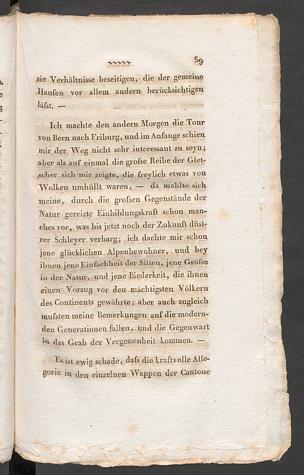 59
sie Verhältnisse beseitigen, die der gemeine
Haufen vor allem andern berücksichtigen
läfst. —
Ich machte den andern Morgen die Tour
von Bern nach Friburg, und im Anfange schien
mir der Weg nicht sehr interessant zu seyn;
aber als auf einmal die grofse Reihe der Glet-
scher sich mir zeigte, die freylich etwas von
Wolken umhüllt waren, — da mahlte sich
meine, durch die grofsen Gegenstände der
Natur gereizte Einbildungskraft schon man-
ches vor, was bis jetzt noch der Zukunft düst-
rer Schleyer verbarg; ich dachte mir schon
jene glücklichen Alpenbewohner, und bey
ihnen jene Einfachheit der Sitten, jene Gröfse
in der Natur, und jene Biederkeit, die ihnen
einen Vorzug vor den mächtigsten Völkern
des Continents gewährte; aber auch zugleich
mufsten meine Bemerkungen auf die modern-
den Generationen fallen, und die Gegenwart
in das Grab der Vergessenheit kommen. —
Es ist ewig schade, dafs die kraftvolle Alle-
gorie in den einzelnen Wappen der Cantone